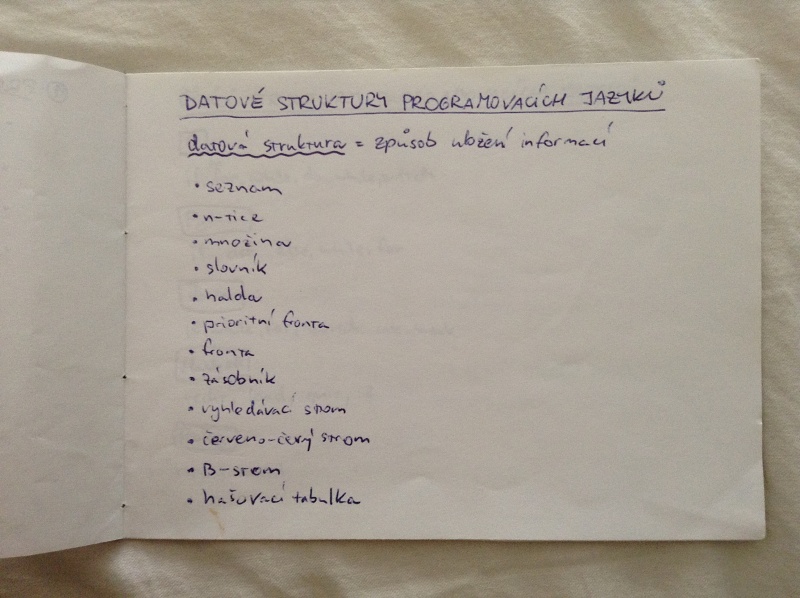 DATOVÉ STRUKTURY PROGRAMOVACÍCH JAZYKŮ
datová struktura = způsob uložení informací
• seznam
• n-tice
• množina
• slovník
• halda
• prioritní fronta
• fronta
• zásobník
• vyhledávací strom
• červeno-černý strom
• B-strom
• hašovací tabulka